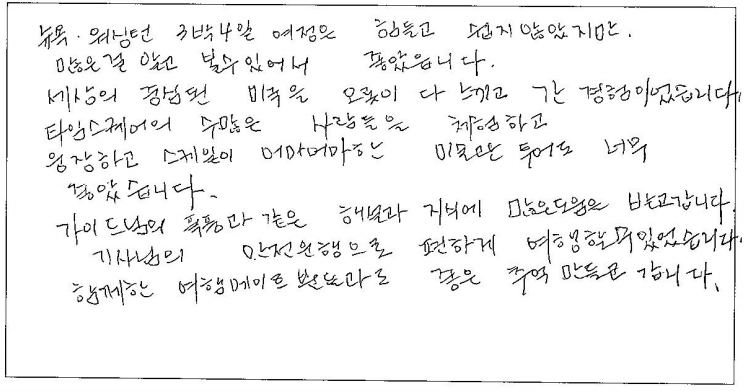 뉴욕·워싱턴 3박4일 여정은 힘들고 쉽지않았지만.
많은걸 알고 볼수있어서 좋았읍니다.
세상의 중심된 미국을 오롯이 다 느끼고 간 경험이었습니다.
타임스퀘어의 수많은 사람들을 체험하고
웅장하고 스케일이 어마어마한 미술관 투어도 너무
좋았습니다.
가이드님의 폭풍과 같은 해설과 지식에 많은도움은 받고갑니다.
기사님의 안전운행으로 편하게 여행할수있었습니다.
함께한 여행메이트 분들과도 좋은 추억 만들고 갑니다.